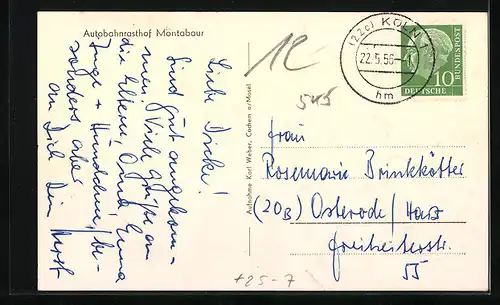 Autobahnrasthof Montabaur
Liebe Dicke!
Sind gut angekom-
men. Viele Grüße an
die Eltern, Oma, Emma
Inge + Hündchen, be-
sonders aber
an Dich Dein Horst
Aufnahme Karl Weber, Cochem a/Mosel
12
545
(22c) KÖLN 1
22.5.56
hm
10
DEUTSCHE
BUNDESPOST
Frau
Rosemarie Brinkkötter
(20B) Osterode/Harz
Freiheiterstr.
55
+25-7